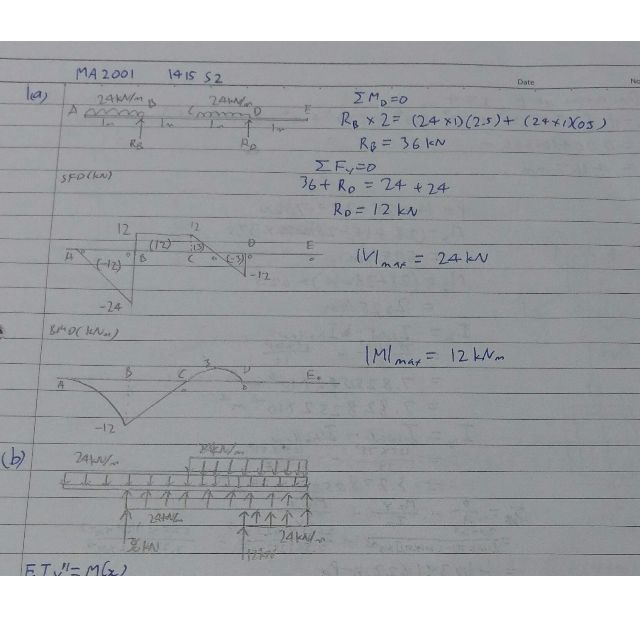 MA2001 1415 S2
Date
No
1(a)
24kN/m
24kN/m
A B C D E
1m 1m 1m 1m
R_B R_D
ΣM_D=0
R_B × 2 = (24×1)(2.5) + (24×1)(0.5)
R_B = 36 kN
ΣF_y=0
36 + R_D = 24 + 24
R_D = 12 kN
SFD(kN)
12 12
A (-12) B (12) C (3) (-3) D E
-12
-24
|V|max = 24 kN
BMD(kNm)
A B C 3 D E
-12
|M|max = 12 kNm
(b)
24kN/m
24kN/m
24kN/m
24kN/m
36kN
12kN
EIy"=M(x)